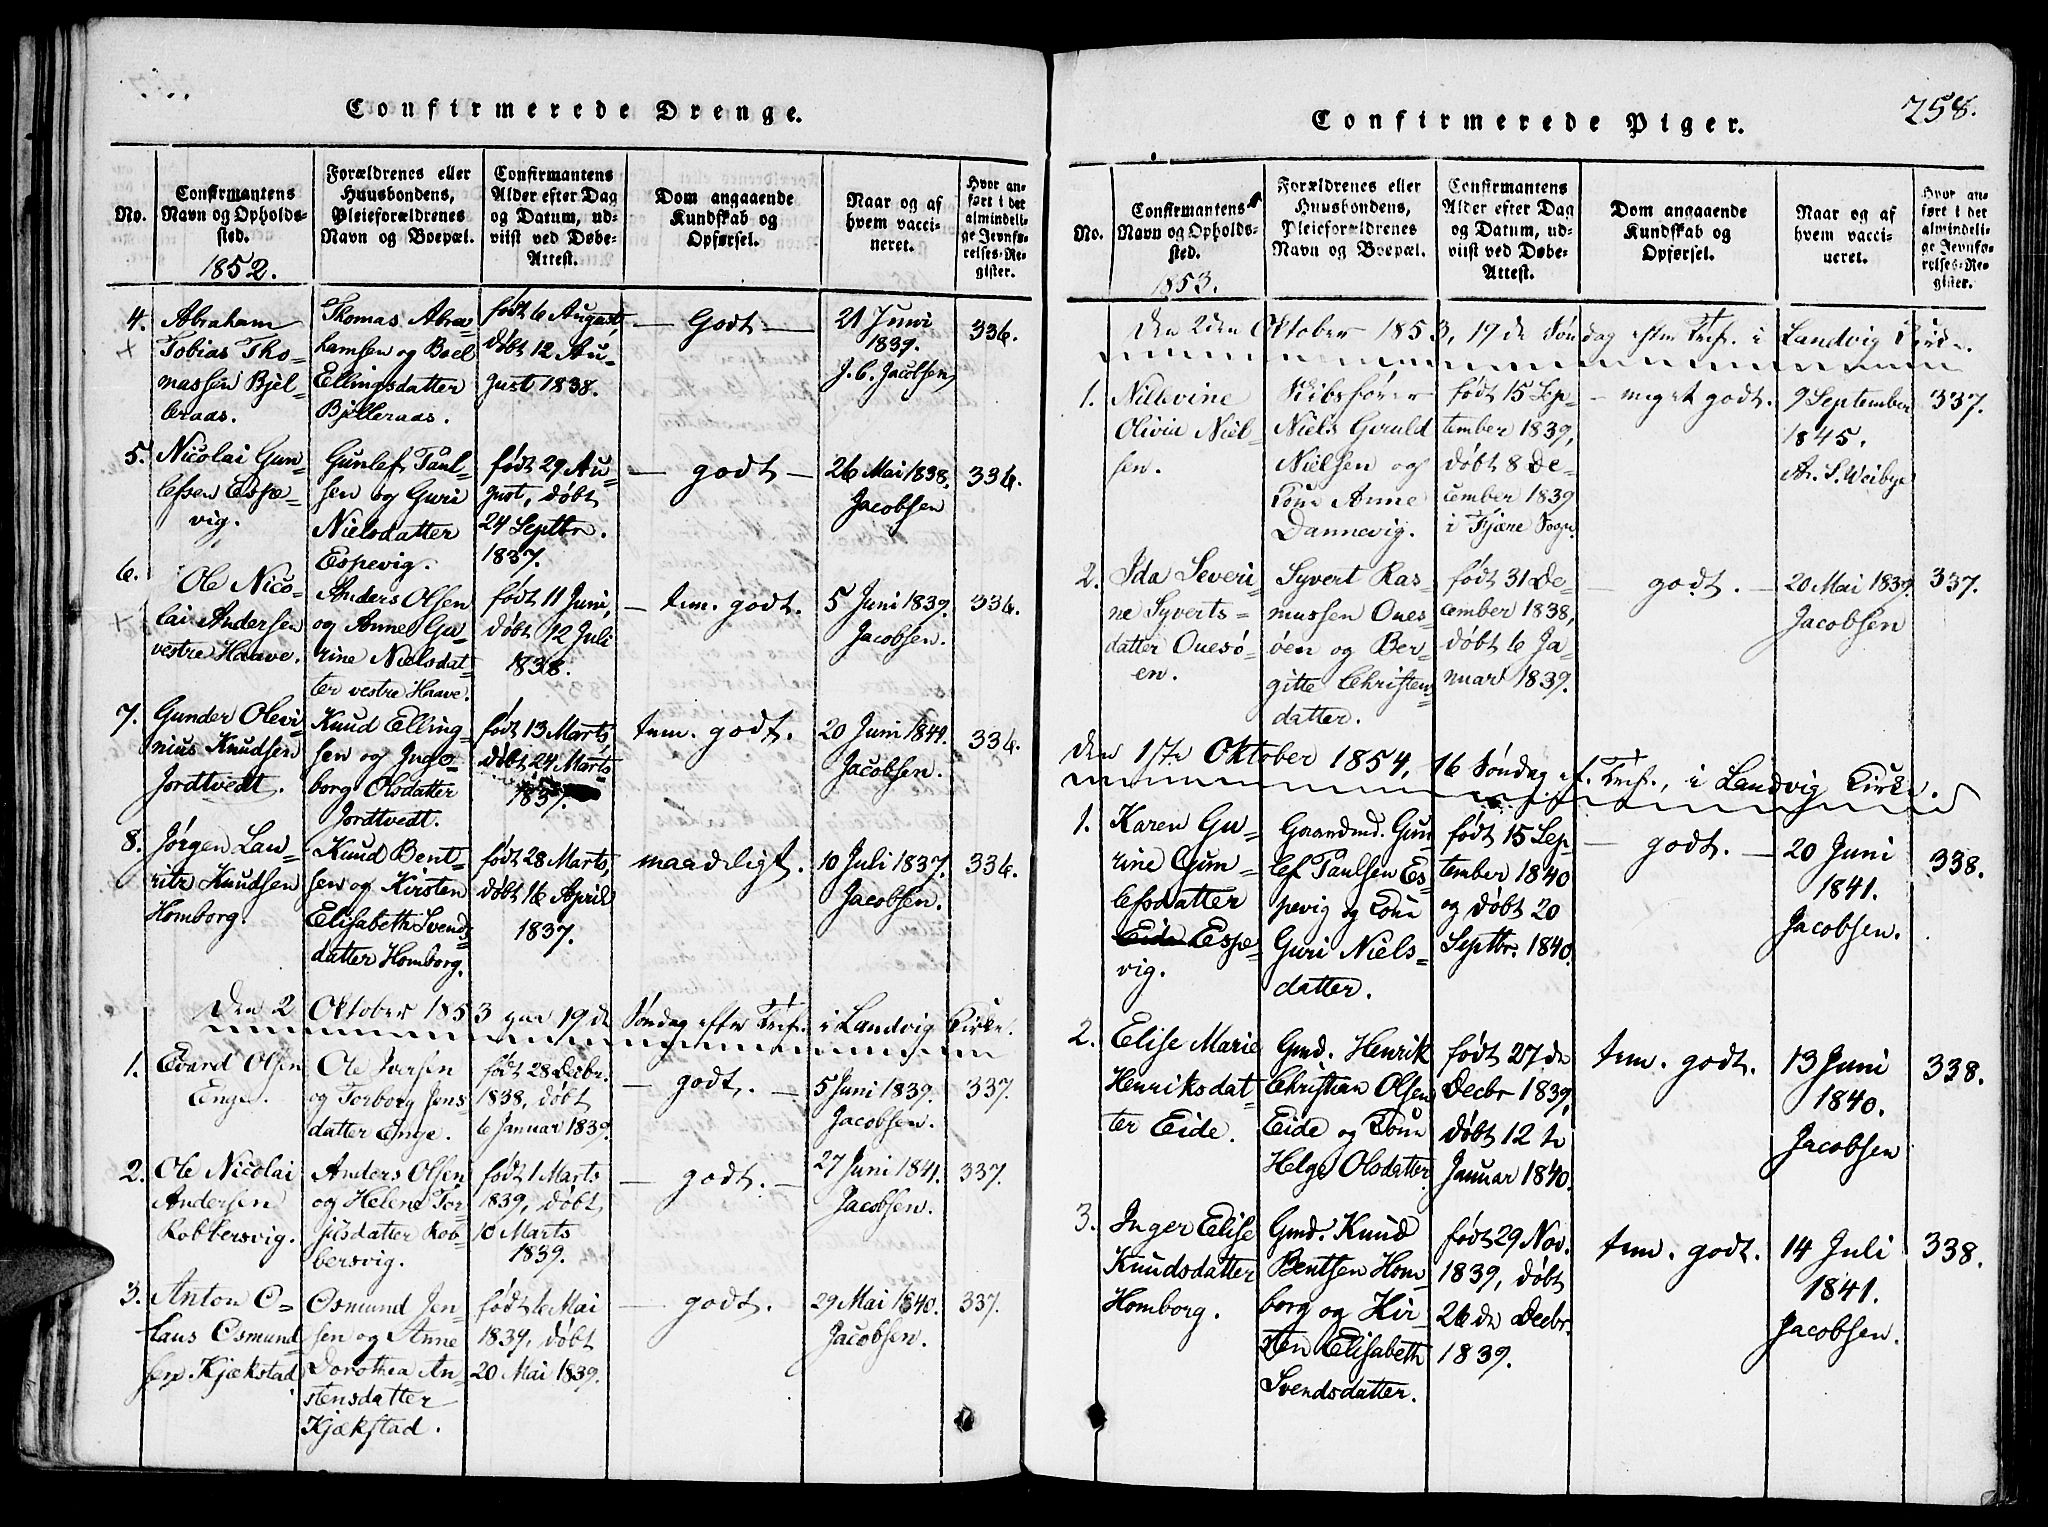 Confirmerede Drenge.
No.
Confirmantens
Navn og Opholds-
sted.
1852.
Forældrenes eller
Huusbondens,
Pleieforældrenes
Navn og Boepæl.
Confirmantens
Alder efter Dag
og Datum, ud-
viist ved Døbe-
Attest.
Dom angaaende
Kundskab og
Opførsel.
Naar og af
hvem vacci-
neret.
Hvor an-
ført i det
almindeli-
ge Jevnfø-
relses-Re-
gister.
4.
Abraham
Tobias Tho-
massen Bjel-
leraas.
Thomas Abra-
hamsen og Boel
Ellingsdatter
Bjelleraas.
født 6 August
døbt 12 Au-
gust 1838.
— Godt —
21 Juni
1839.
J. C. Jacobsen
336.
5.
Nicolai Gun-
lefsen Espe-
vig.
Gunlef Paul-
sen og Guri
Nielsdatter
Espevig.
født 29 Au-
gust, døbt
24 Septbr.
1837.
— godt —
26 Mai 1838.
Jacobsen
336.
6.
Ole Nico-
lai Andersen
vestre Haave.
Anders Olsen
og Anne Gu-
rine Nielsdat-
ter vestre Haave.
født 11 Juni,
døbt 12 Juli
1838.
— tem. godt.
5 Juni 1839.
Jacobsen.
336.
7.
Gunder Olevi-
nius Knudsen
Jordtvedt.
Knud Elling-
sen og Inge-
borg Olsdatter
Jordtvedt.
født 13 Marts,
døbt 24 Marts
1837.
tem. godt.
20 Juni 1841.
Jacobsen.
336.
8.
Jørgen Lau-
ritz Knudsen
Homborg.
Knud Bent-
sen og Kirsten
Elisabeth Svends-
datter Homborg.
født 28 Marts,
døbt 16 April
1837.
maadeligt.
10 Juli 1837.
Jacobsen.
336.
Den 2 Oktober 1853 paa 19 de Søndag efter Tref. i Landvig Kirke.
1.
Evard Olsen
Enge.
Ole Jversen
og Torborg Jens
datter Enge.
født 28 Decbr.
1838, døbt
6 Januar 1839.
— godt. —
5 Juni 1839.
Jacobsen.
337.
2.
Ole Nicolai
Andersen
Robbersvig.
Anders Olsen
og Helene Ter-
jusdatter Rob-
bersvig.
født 1 Marts
1839, døbt
10 Marts
1839.
— godt. —
27 Juni 1841.
Jacobsen.
337.
3.
Anton O-
laus Osmund
sen Kjækstad
Osmund Jen-
sen og Anne
Dorothea An-
stensdatter
Kjækstad.
født 6 Mai
1839, døbt
20 Mai 1839.
— godt.
29 Mai 1840.
Jacobsen.
337.
258.
Confirmerede Piger.
No.
Confirmantens
Navn og Opholds-
sted.
1853.
Forældrenes eller
Huusbondens,
Pleieforældrenes
Navn og Boepæl.
Confirmantens
Alder efter Dag
og Datum, ud-
viist ved Døbe-
Attest.
Dom angaaende
Kundskab og
Opførsel.
Naar og af
hvem vacci-
neret.
Hvor an-
ført i det
almindeli-
ge Jevnfø-
relses-Re-
gister.
Den 2den Oktober 1853, 19 de Søndag efter Tref. i Landvig Kirke.
1.
Nillevine
Olivia Niel-
sen.
Skibsfører
Niels Gerald
Nielsen og
Kone Anne
Dannevig.
født 15 Sep-
tember 1839,
døbt 8 De-
cember 1839
i Fjære Sogn.
— meget godt.
9 September
1845.
A. S. Weibye
337.
2.
Ida Severi-
ne Syverts-
datter Ouesø-
en.
Syvert Ras-
mussen Oues-
øen og Ber-
gitte Christens
datter.
født 31 De-
cember 1838,
døbt 6 Ja-
nuar 1839.
— godt. —
20 Mai 1839.
Jacobsen
337.
Den 1ste Oktober 1854, 16 Søndag ef. Tref., i Landvig Kirke.
1.
Karen Gu-
rine Gun-
lefsdatter
Eide Espe-
vig.
Gaardmd. Gun
lef Paulsen Es-
pevig og Kone
Guri Niels-
datter.
født 15 Sep-
tember 1840
og døbt 20
Septbr. 1840.
— godt. —
20 Juni
1841.
Jacobsen.
338.
2.
Elise Marie
Henriksdat-
ter Eide.
Gmd. Henrik
Christian Olsen
Eide og Kone
Helge Olsdatter.
født 27 de
Decbr 1839,
døbt 12 te
Januar 1840.
tem. godt.
13 Juni
1840.
Jacobsen
338.
3.
Inger Elise
Knudsdatter
Homborg.
Gmd. Knud
Bentsen Hom-
borg og Kir-
sten Elisabeth
Svendsdatter.
født 29 Nov.
1839, døbt
26 de Decbr.
1839.
tem. godt.
14 Juli
1841.
Jacobsen.
338.